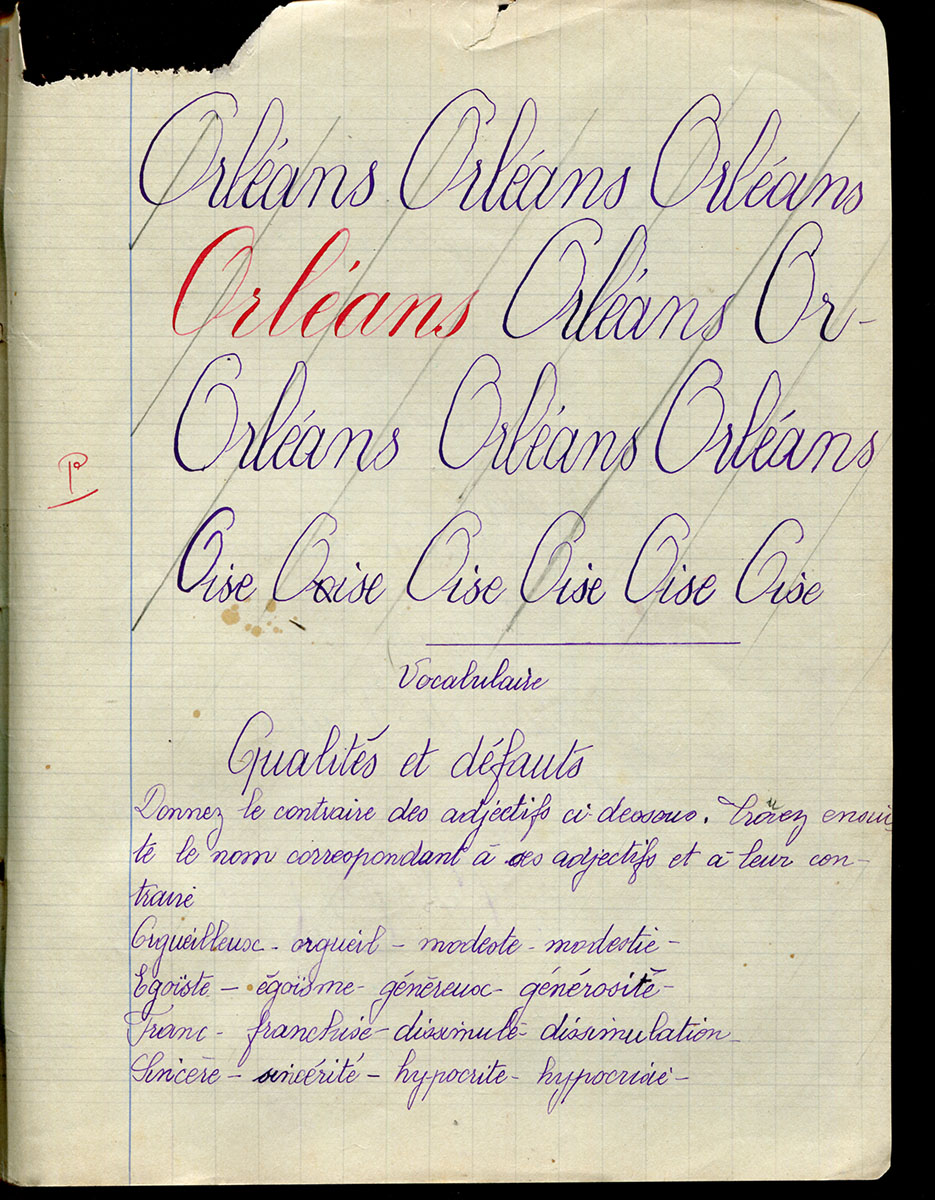 Orléans Orléans Orléans
Orléans Orléans Or-
Orléans Orléans Orléans
Oise Ooise Oise Oise Oise Oise
Vocabulaire
Qualités et défauts
Donnez le contraire des adjectifs ci-dessous. Trouvez ensui
te le nom correspondant à ces adjectifs et à leur con-
traire
Orgueilleux - orgueil - modeste - modestie -
Egoïste - égoïsme - généreux - générosité -
Franc - franchise - dissimulé - dissimulation -
Sincère - sincérité - hypocrite - hypocrisie -